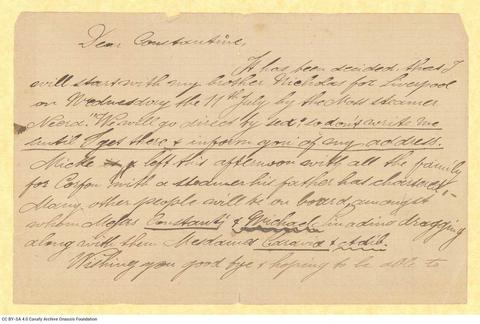 Dear Constantine,
It has been decided that I
will start with my brother Nicholas for Liverpool
on Wednesday the 19th July by the Moss steamer
We will go direct by sea, so don't write me
until I get there & inform you of my address.
Mické left this afternoon with all the family
for Corfou with a steamer his father has chartered,
Many other people will be on board, amongst
whom Messrs Constanty & Michael inading dragging
along with them Mesdames &
Wishing you good bye & hoping to be able to
CC BY-SA 4.0 Cavafy Archive Onassis Foundation